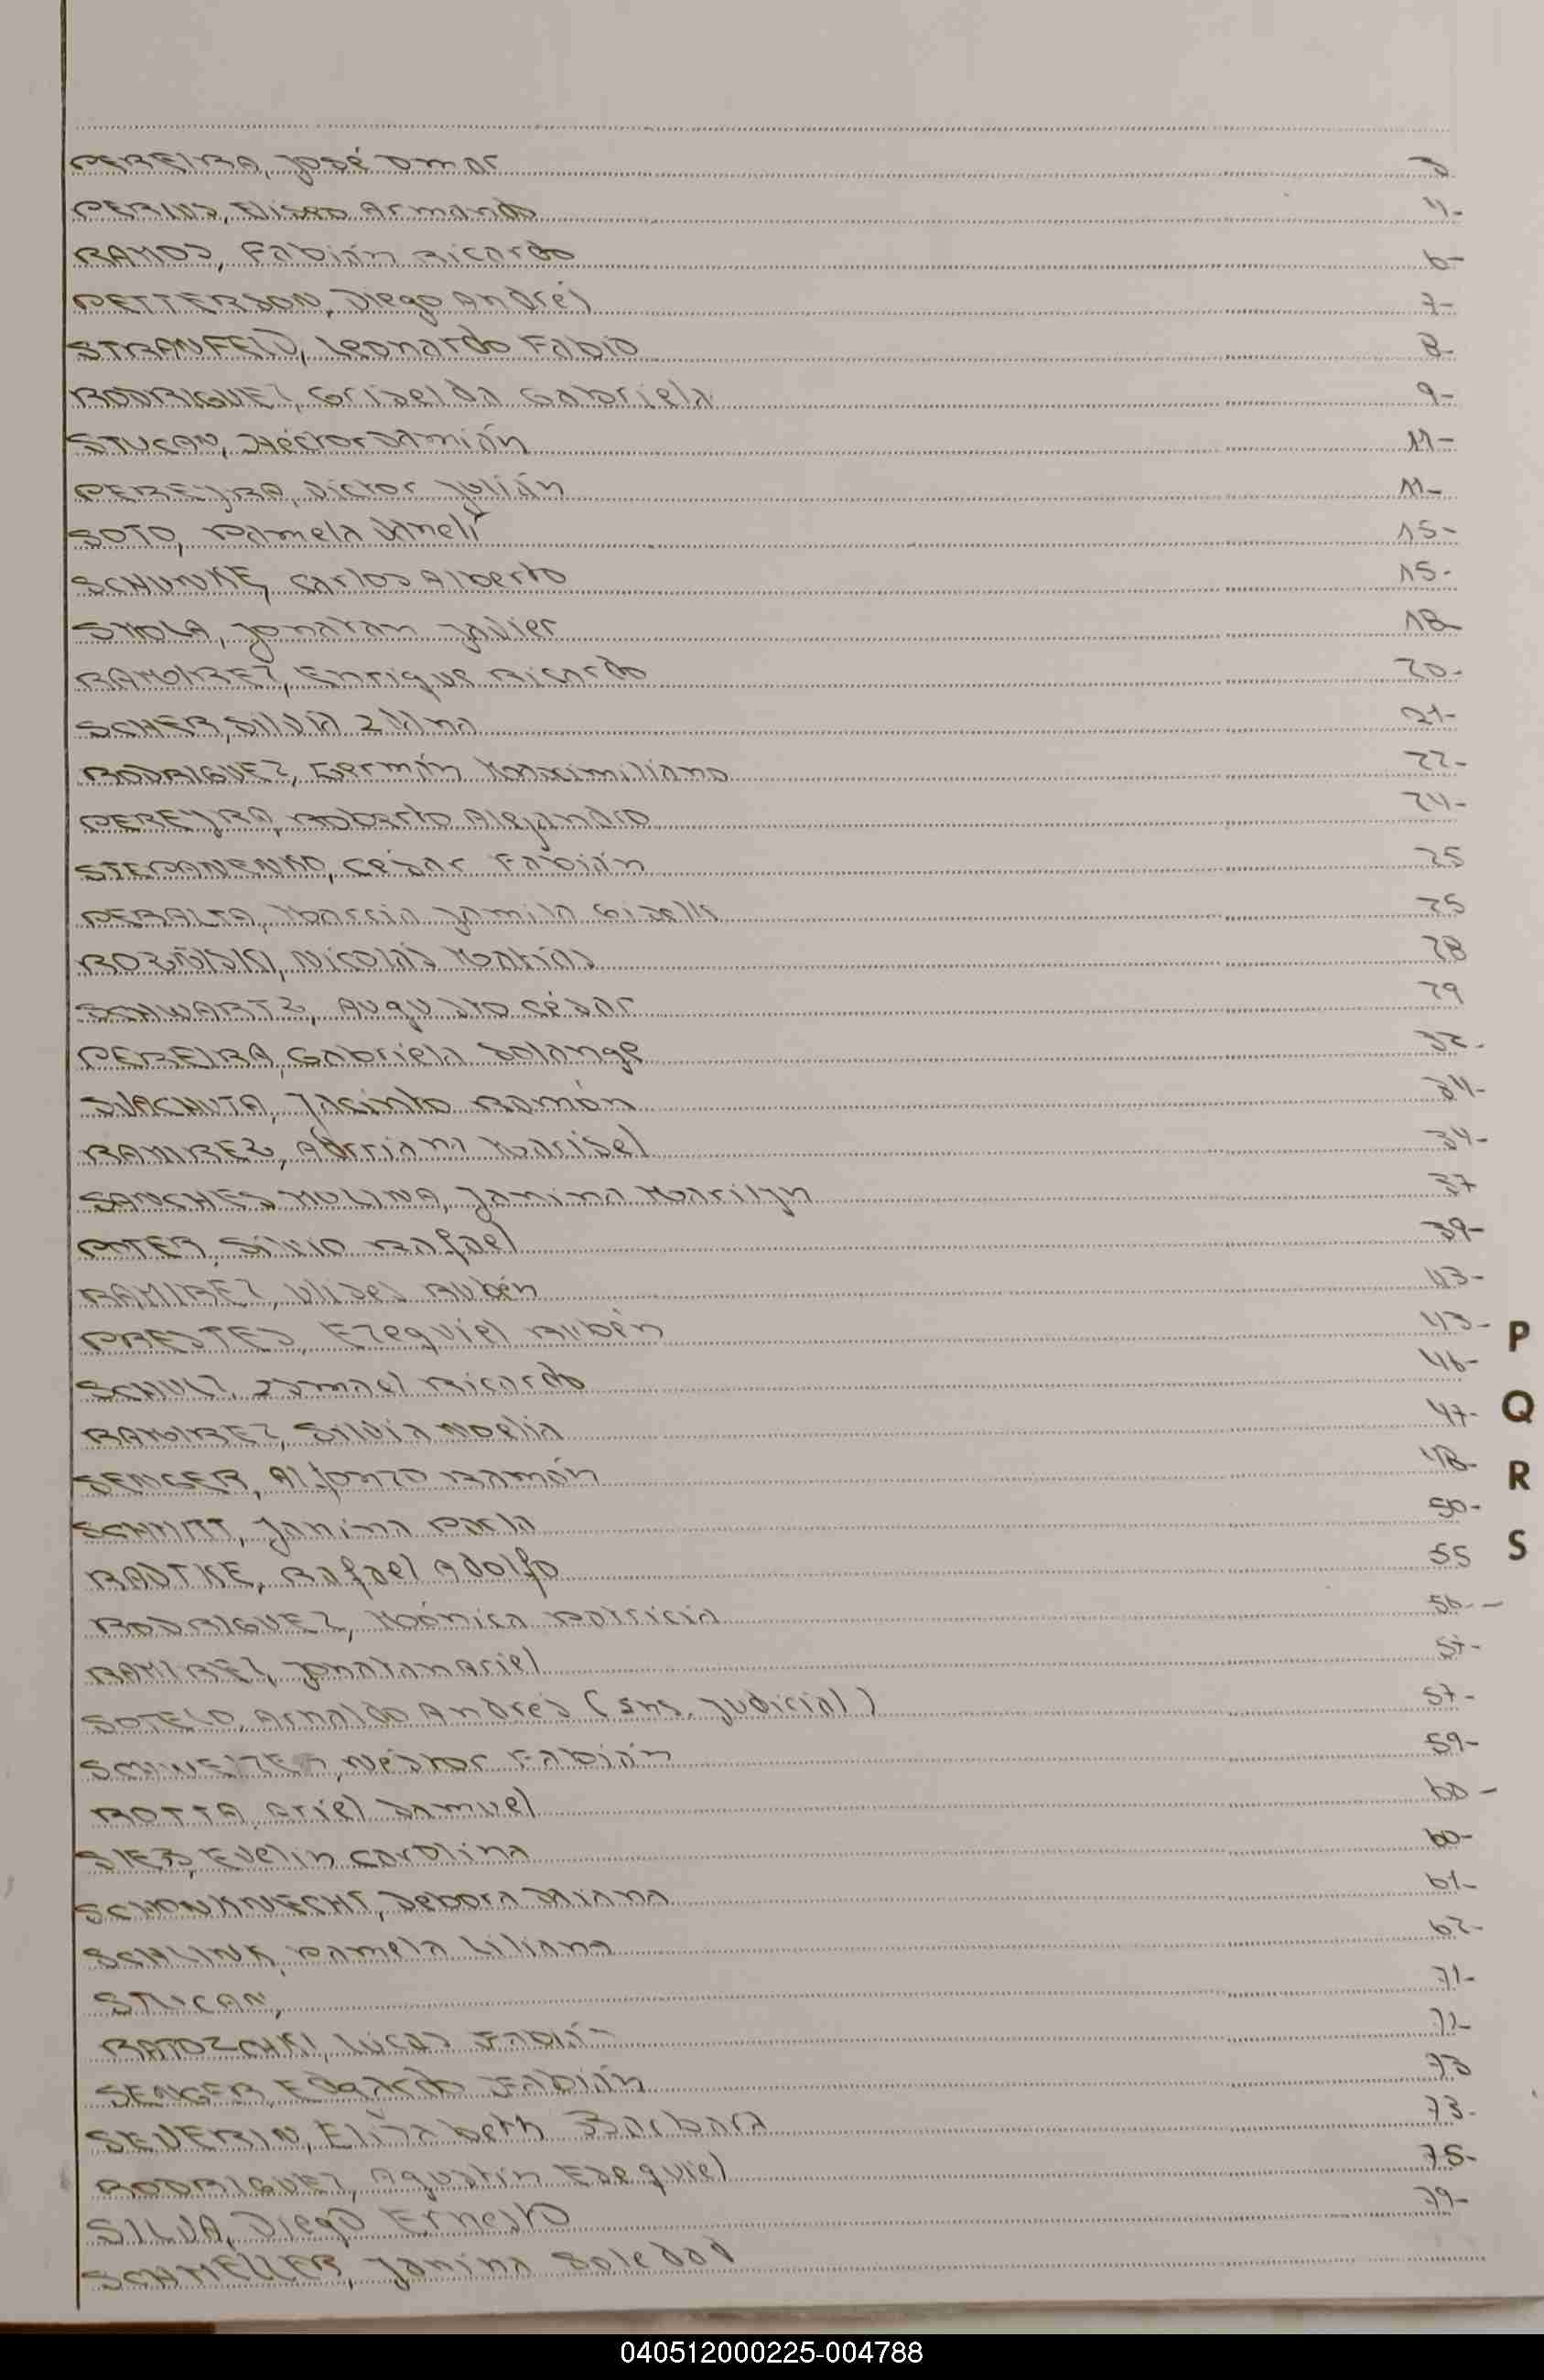 PEREIRA, José Omar 3
PERIUS, Eliseo Armando 4-
RAMOS, Fabián Ricardo 6-
PETTERSON, Diego Andrés 7-
STRANFELD, Leonardo Fabio 8-
RODRIGUEZ, Griselda Gabriela 9-
STUCAN, Héctor Damián 11-
PEREYRA, Victor Julián 11-
SOTO, Pamela Vaneli 15-
SCHUNKE, Carlos Alberto 15-
SMOLA, Jonatan Javier 18-
RAMIREZ, Enrique Ricardo 20-
SCHER, Silvia 21-
RODRIGUEZ, Germán Maximiliano 22-
PEREYRA, Roberto Alejandro 24-
STEPANENKO, César Fabián 25
PERALTA, Marcia Jamila Giselle 25
ROZÑISKI, Nicolás Matías 28
SCHWARTZ, Augusto César 29
PEREIRA, Gabriela Solange 32-
SVACHUTA, Jacinto Ramón 34-
RAMIREZ, Adrriana Marisel 34-
SANCHES MOLINA, Janina Marilyn 37
POTER, Silvio Rafael 39-
RAMIREZ, Ulises Rubén 43-
PRESTES, Ezequiel Rubén 43-
SCHULZ, Ismael Ricardo 46-
RAMIREZ, Silvia Noelia 47-
SENGER, Alfonzo Ramón 48-
SCHMITT, Janina Paola 50-
RADTKE, Rafael Adolfo 55
RODRIGUEZ, Mónica Patricia 56-
RAMIREZ, Jonatan Ariel 57-
SOTELO, Arnaldo Andrés (Ins. Judicial) 57-
SCHWEIZER, Néstor Fabián 59-
ROTTA, Ariel Samuel 60-
SIEB, Evelin Carolina 60-
SCHONKNECHT, Debora Daiana 61-
SCHLINK, Pamela Liliana 62-
STUCAN, 71-
RATOZCHKI, Lucas Fabián 72-
SENGER, Edgardo Fabián 73
SEVERIN, Elizabeth Barbara 73-
RODRIGUEZ, Agustín Esequiel 75-
SILVA, Diego Ernesto 79-
SCHMELLER, Janina Soledad
P
Q
R
S
040512000225-004788